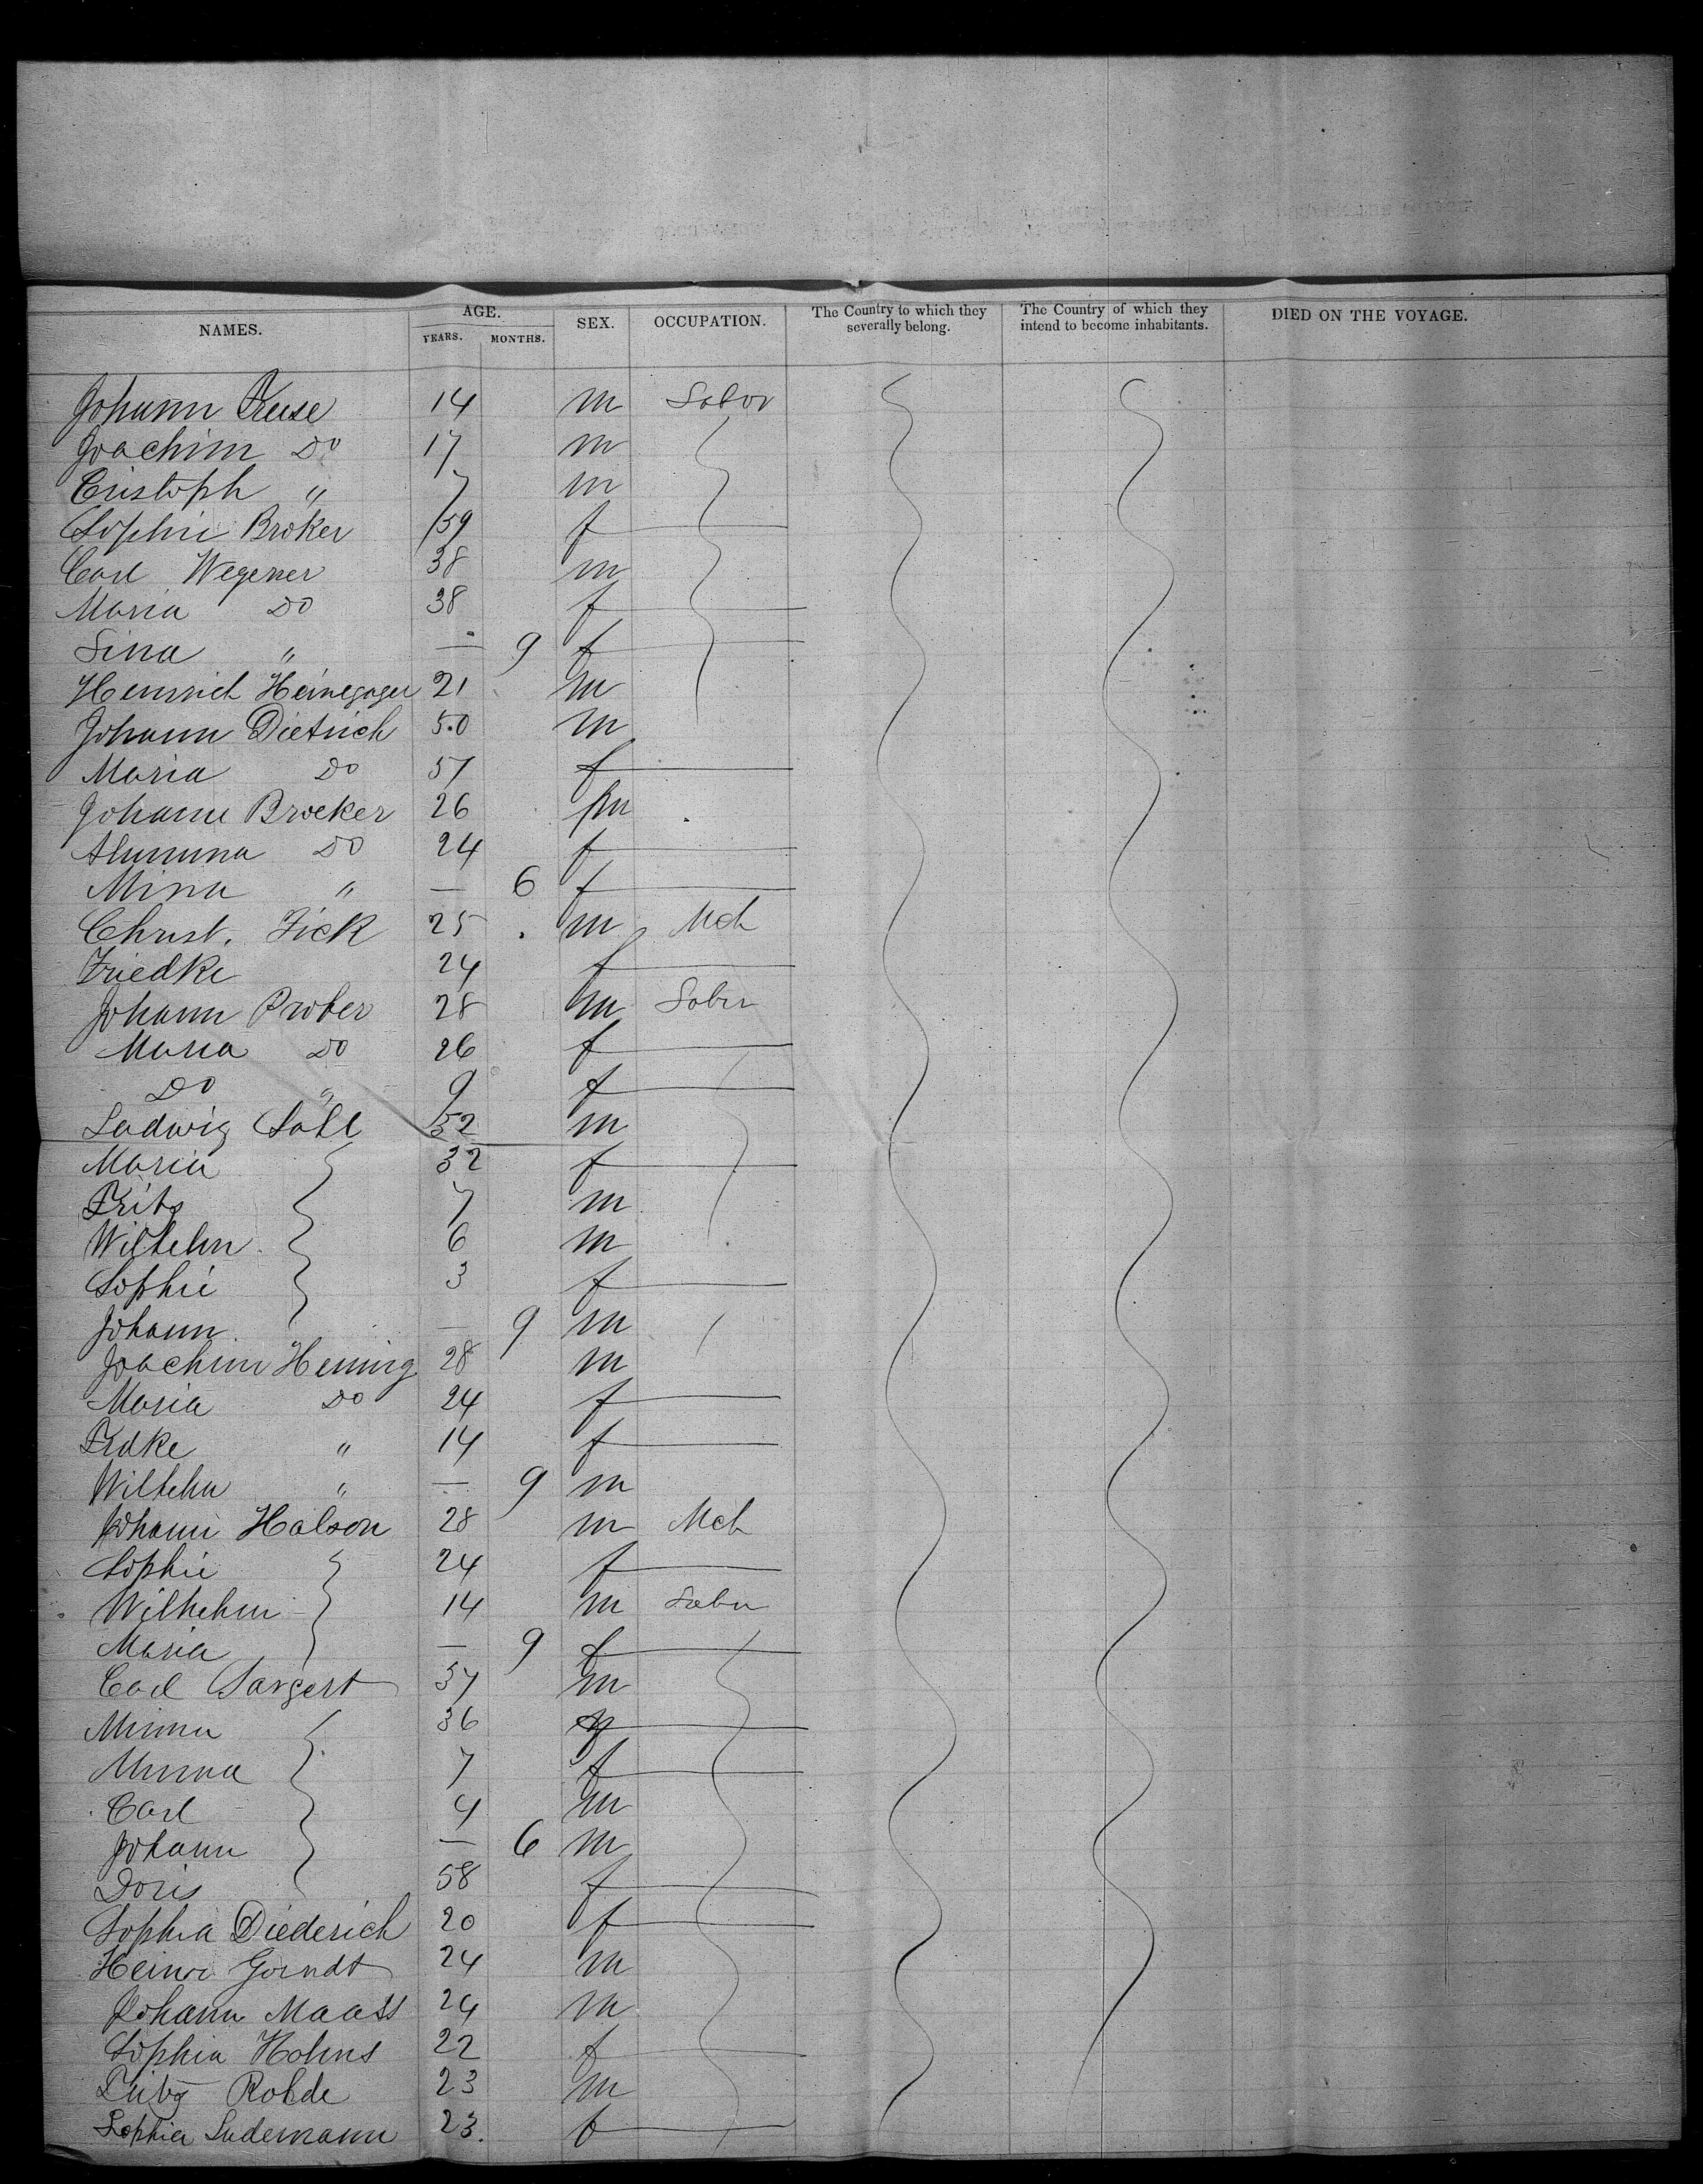 NAMES. AGE. YEARS. MONTHS. SEX. OCCUPATION. The Country to which they severally belong. The Country of which they intend to become inhabitants. DIED ON THE VOYAGE.
Johann 14 m Labor
Joachim Do 17 m
Cristoph " 7 m
Sophie Broker 59 f
Carl Wegener 38 m
Maria Do 38 f
Lina " — 9 f
Heinrich 21 m
Johann Dietrich 50 m
Maria Do 57 f
Johann Broeker 26 m
Do 24 f
Mina " — 6 f
Christ. Fick 25 m Mch
Friedke 24 f
Johann 28 m Labor
Maria Do 26 f
Do " 9 f
Ludwig 52 m
Maria 32 f
Fritz 7 m
Wilhelm 6 m
Sophie 3 f
Johann — 9 m
Joachim Hennig 28 m
Maria Do 24 f
Frdke " 14 f
Wilhelm " — 9 m
Johann Halson 28 m Mch
Sophie 24 f
Wilhelm 14 m Labor
Maria — 9 f
Carl 37 m
Minna 36 f
Minna 7 f
Carl 4 m
Johann — 6 m
Doris 58 f
Sophia Diederich 20 f
Heinr 24 m
Johann Maass 24 m
Sophia 22 f
Fritz Rohde 23 m
Sophia Ludemann 23. f